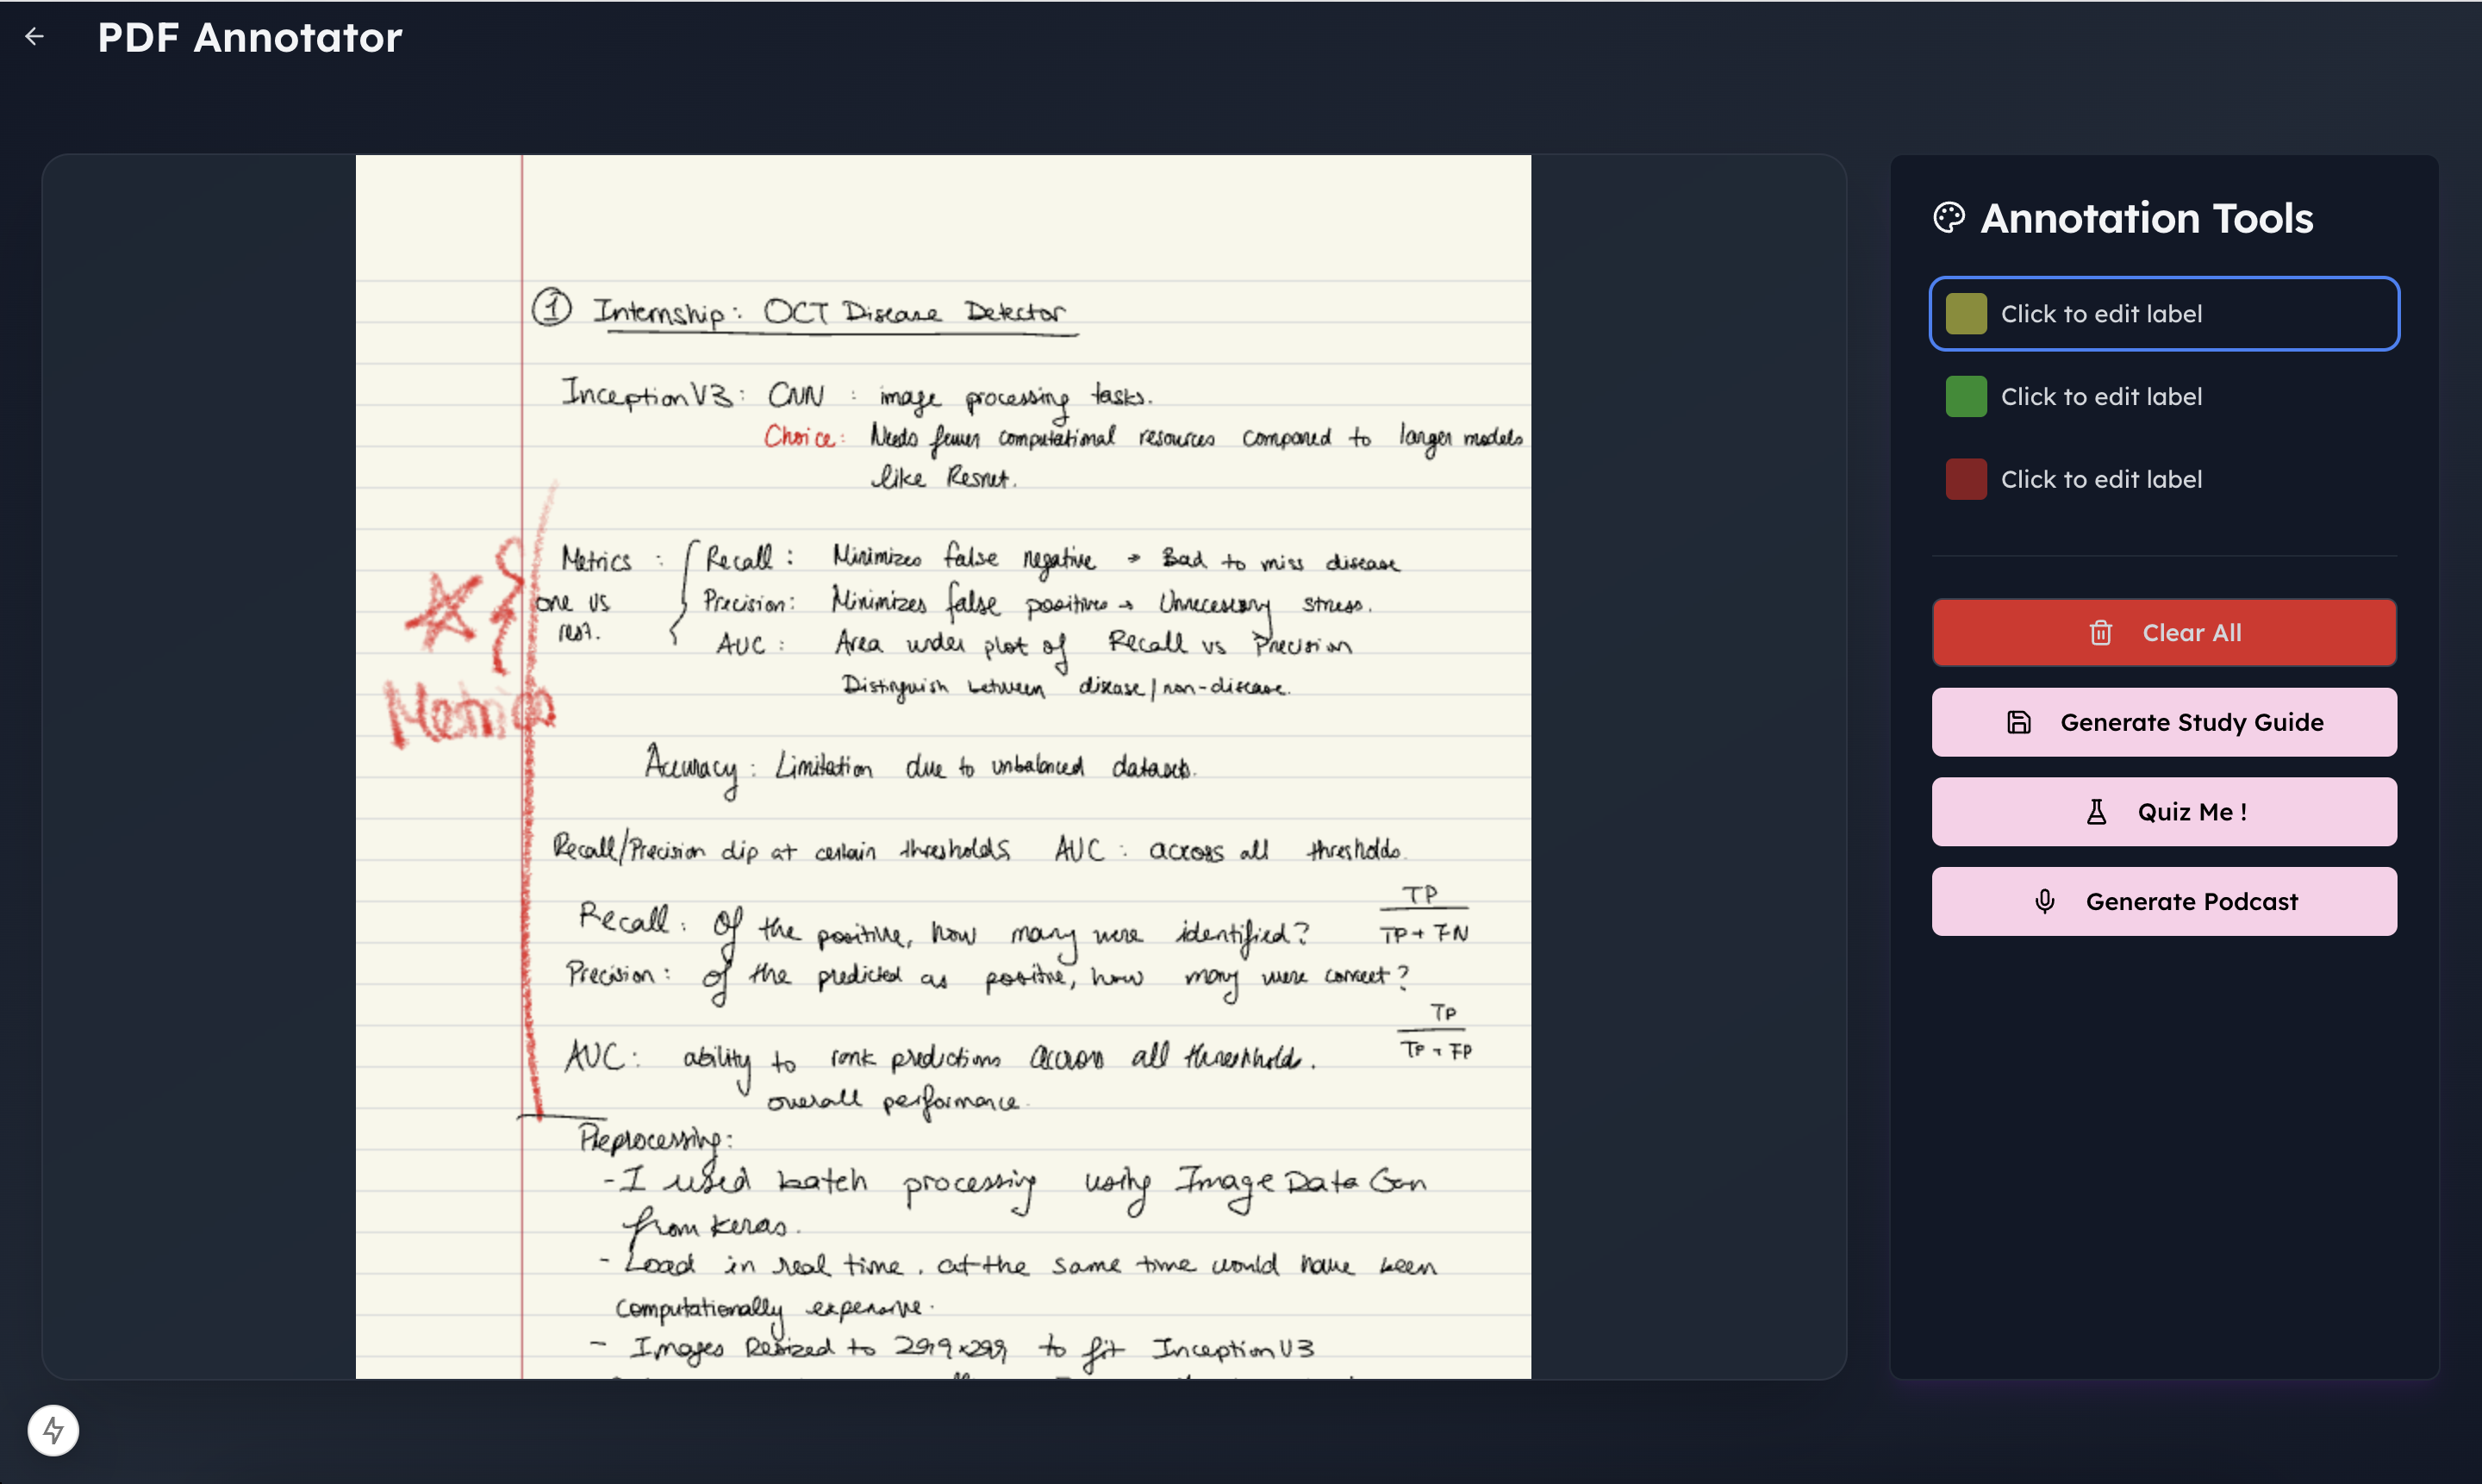 PDF Annotator
① Internship: OCT Disease Detector
InceptionV3: CNN : image processing tasks.
Choice: Needs fewer computational resources compared to larger models
like Resnet.
Metrics : Recall : Minimizes false negative → Bad to miss disease
one vs Precision: Minimizes false positives → Unnecessary stress.
rest. AUC : Area under plot of Recall vs Precision
Distinguish between disease/non-disease.
Metrics
Accuracy : Limitation due to unbalanced datasets.
Recall/Precision dip at certain thresholds AUC : across all thresholds.
Recall: Of the positive, how many were identified? TP / TP + FN
Precision: of the predicted as positive, how many were correct?
TP / TP + FP
AUC: ability to rank predictions across all threshholds.
overall performance.
Preprocessing:
- I used batch processing using Image Data Gen
from keras.
- Load in real time. at the same time would have been
computationally expensive.
- Images Resized to 299x299 to fit InceptionV3
Annotation Tools
Click to edit label
Click to edit label
Click to edit label
Clear All
Generate Study Guide
Quiz Me !
Generate Podcast